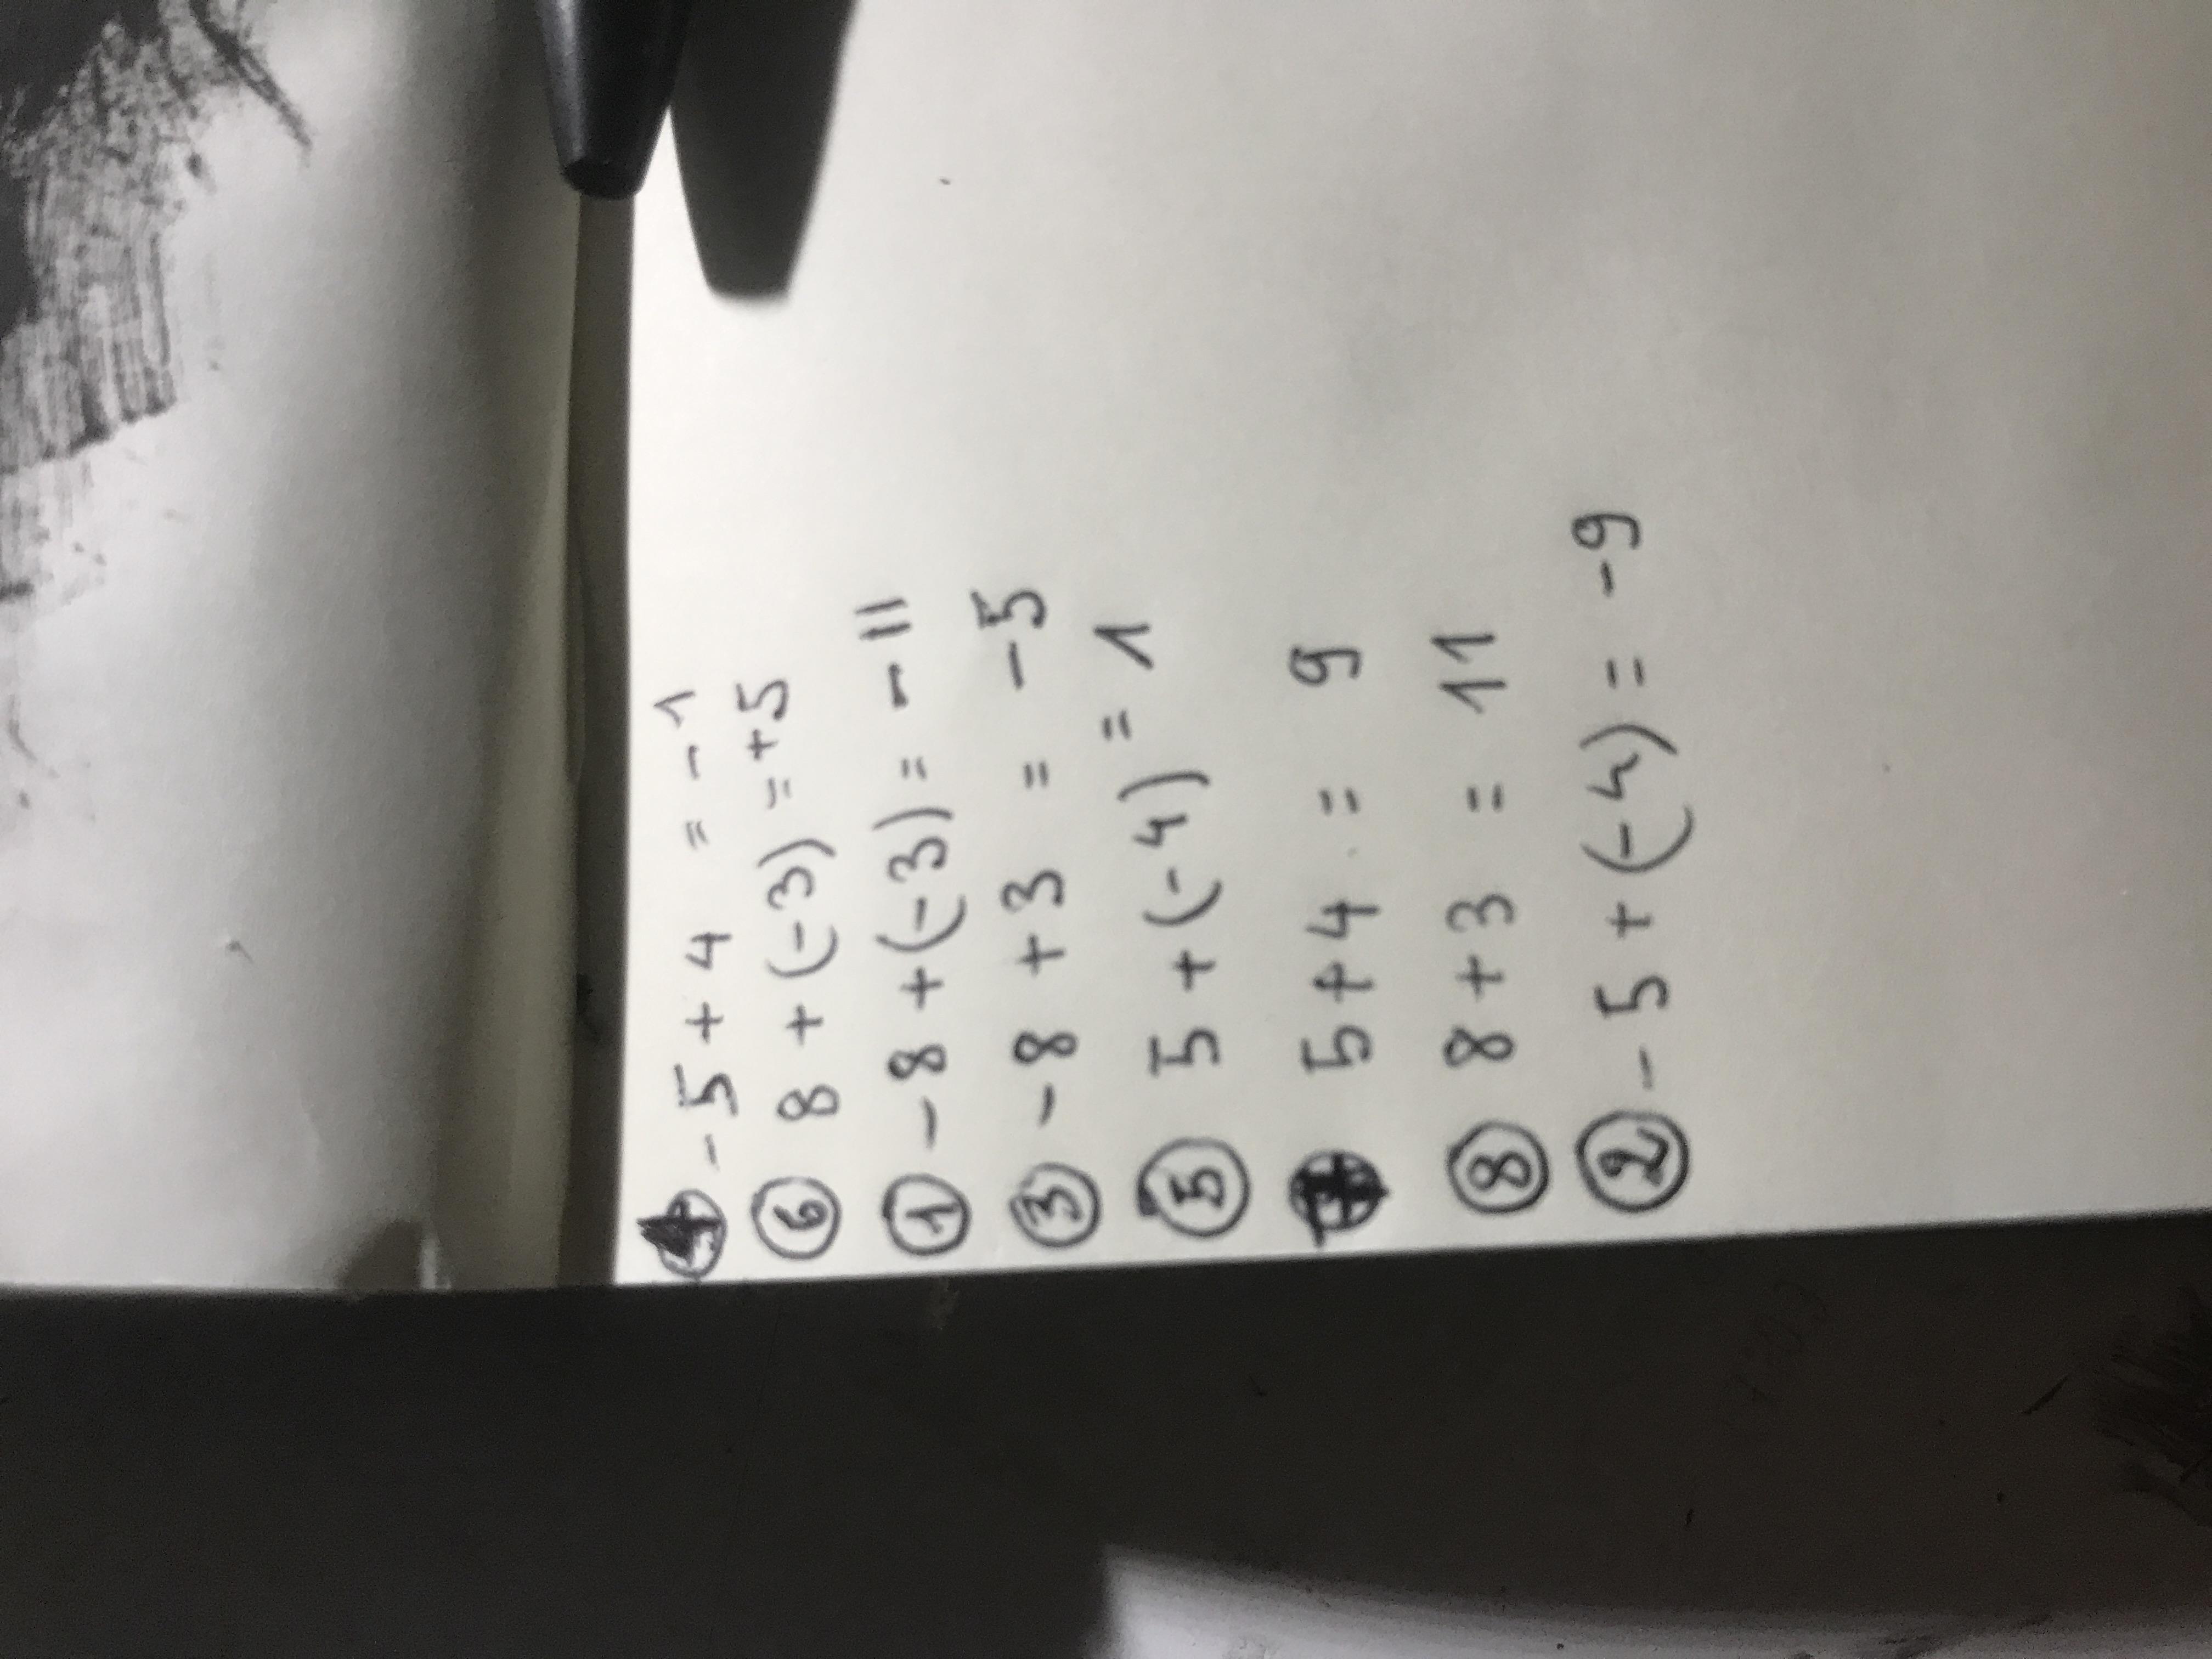 ④ -5 + 4 = -1
⑥ 8 + (-3) = +5
① -8 + (-3) = -11
③ -8 + 3 = -5
⑤ 5 + (-4) = 1
⑦ 5 + 4 = 9
⑧ 8 + 3 = 11
② -5 + (-4) = -9